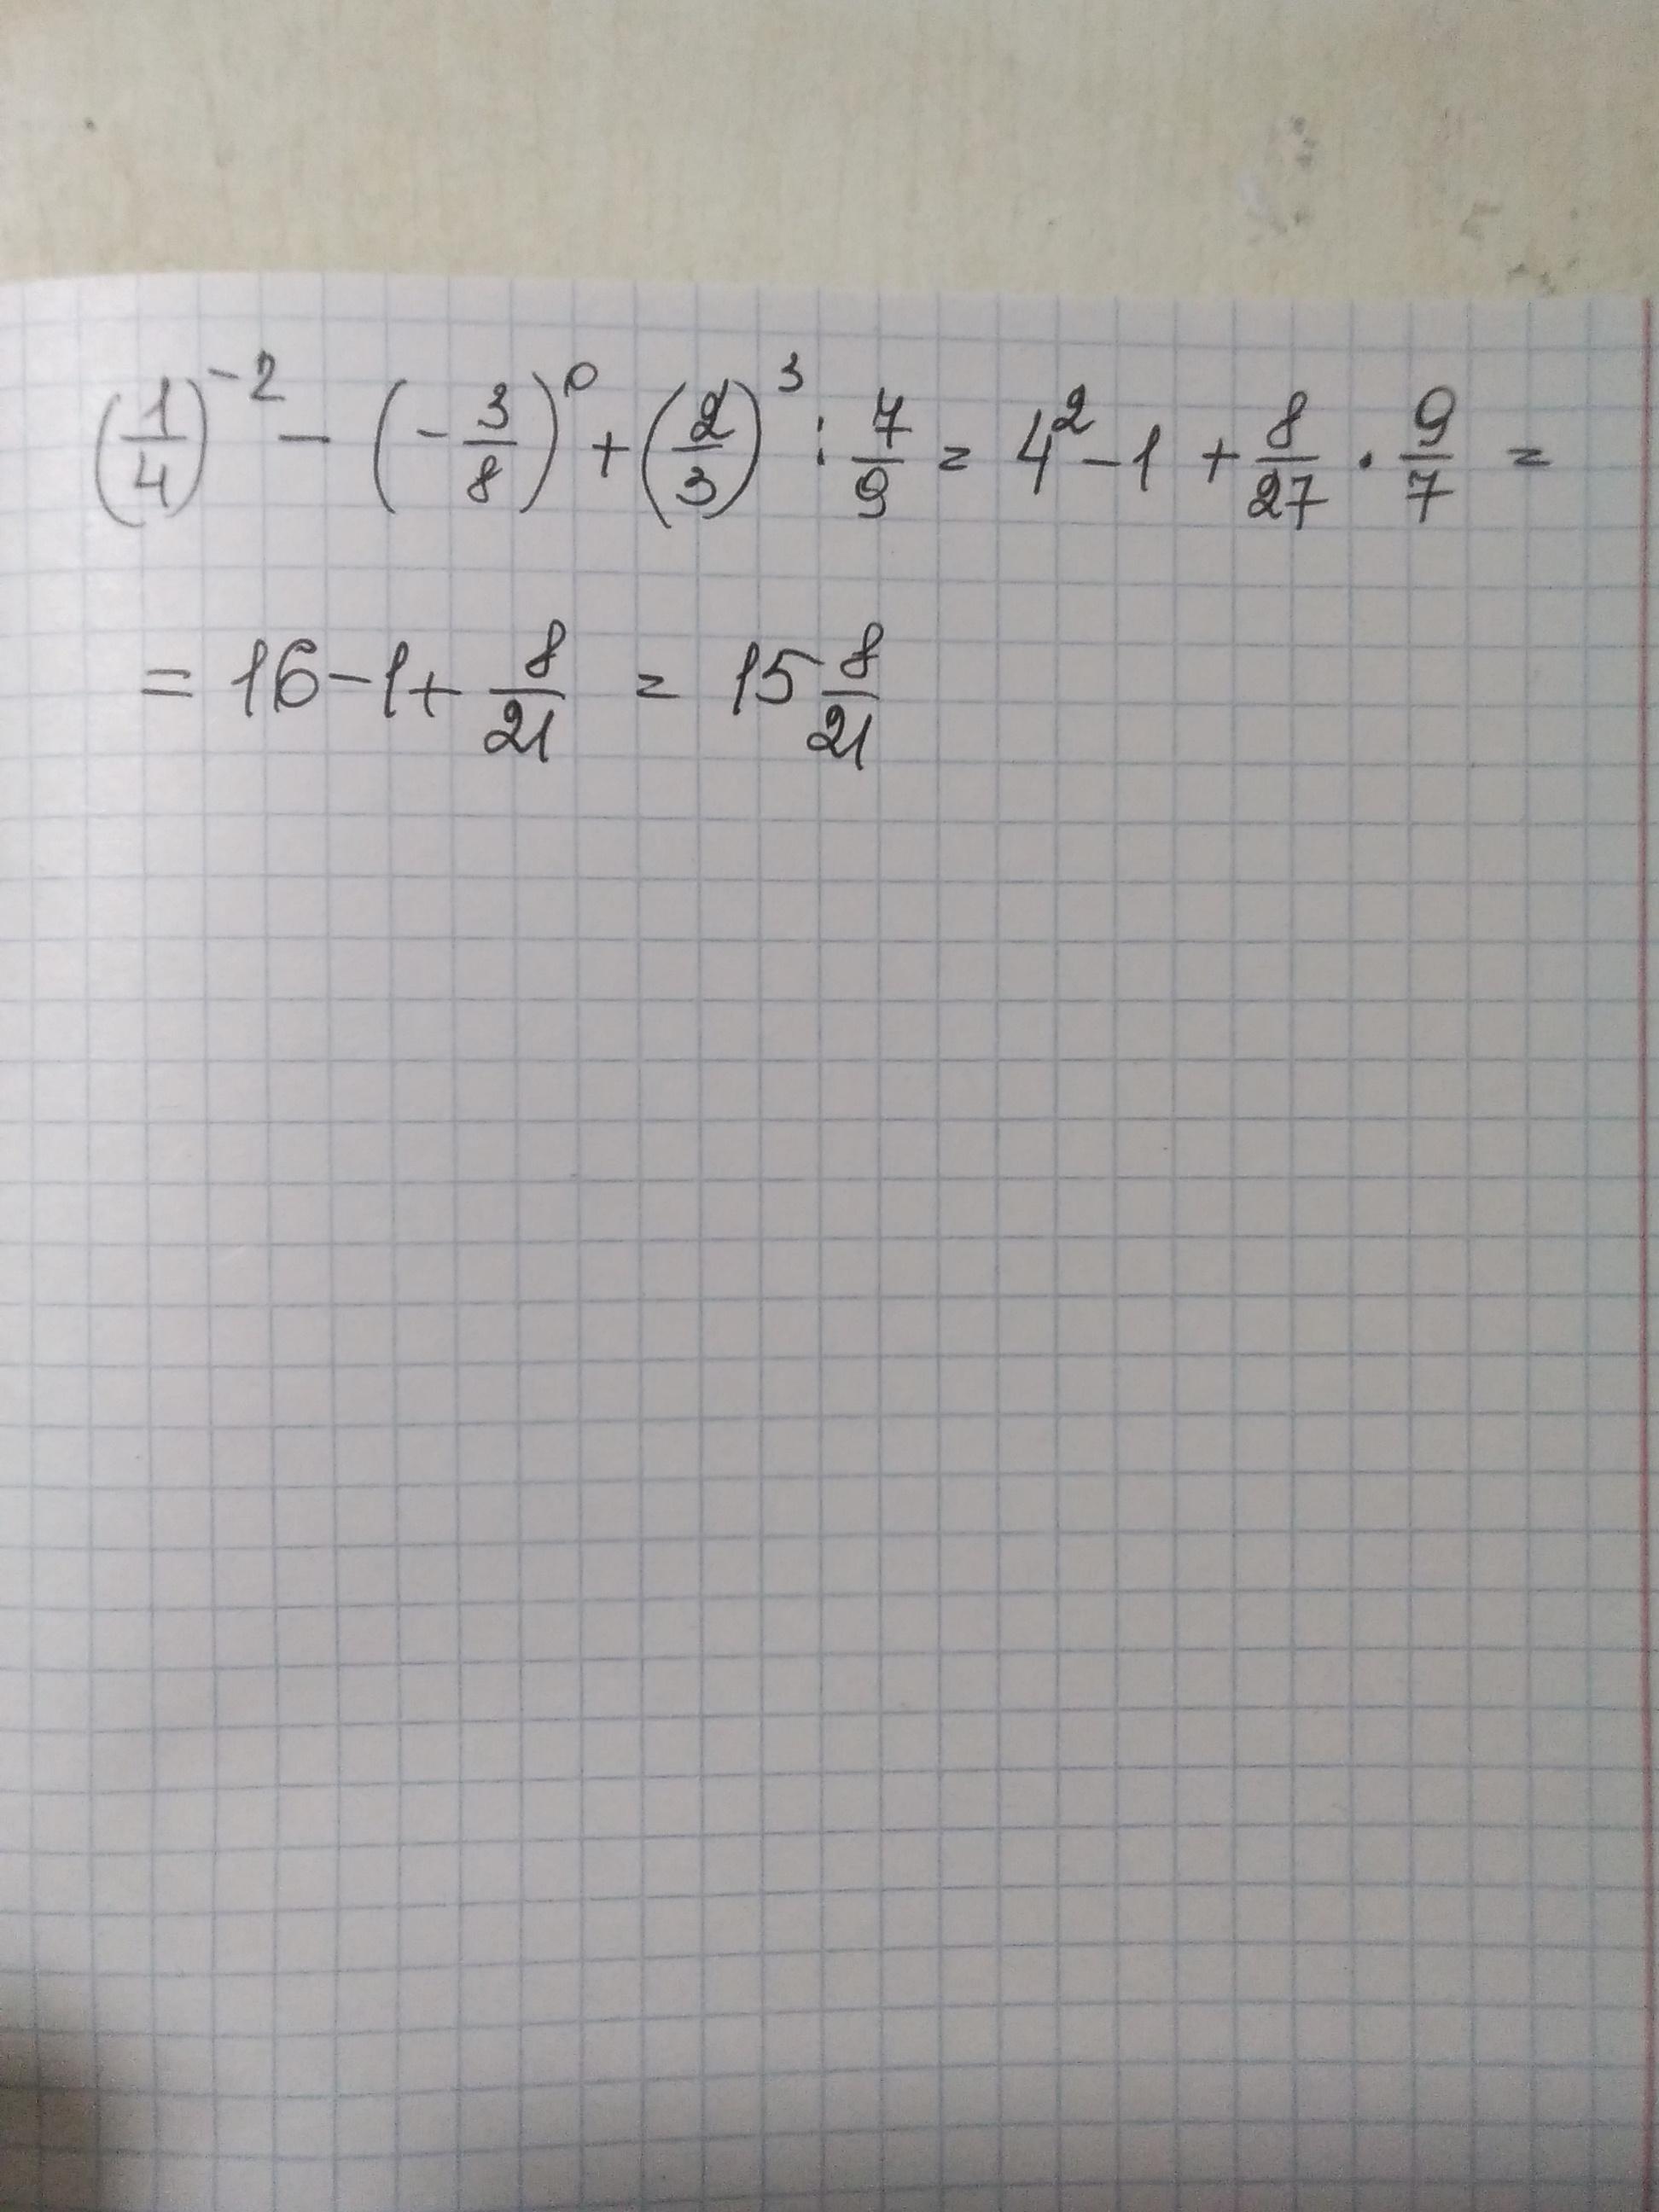 (1/4)⁻² - (-3/8)⁰ + (2/3)³ : 7/9 = 4² - 1 + 8/27 · 9/7 =
= 16 - 1 + 8/21 = 15 8/21